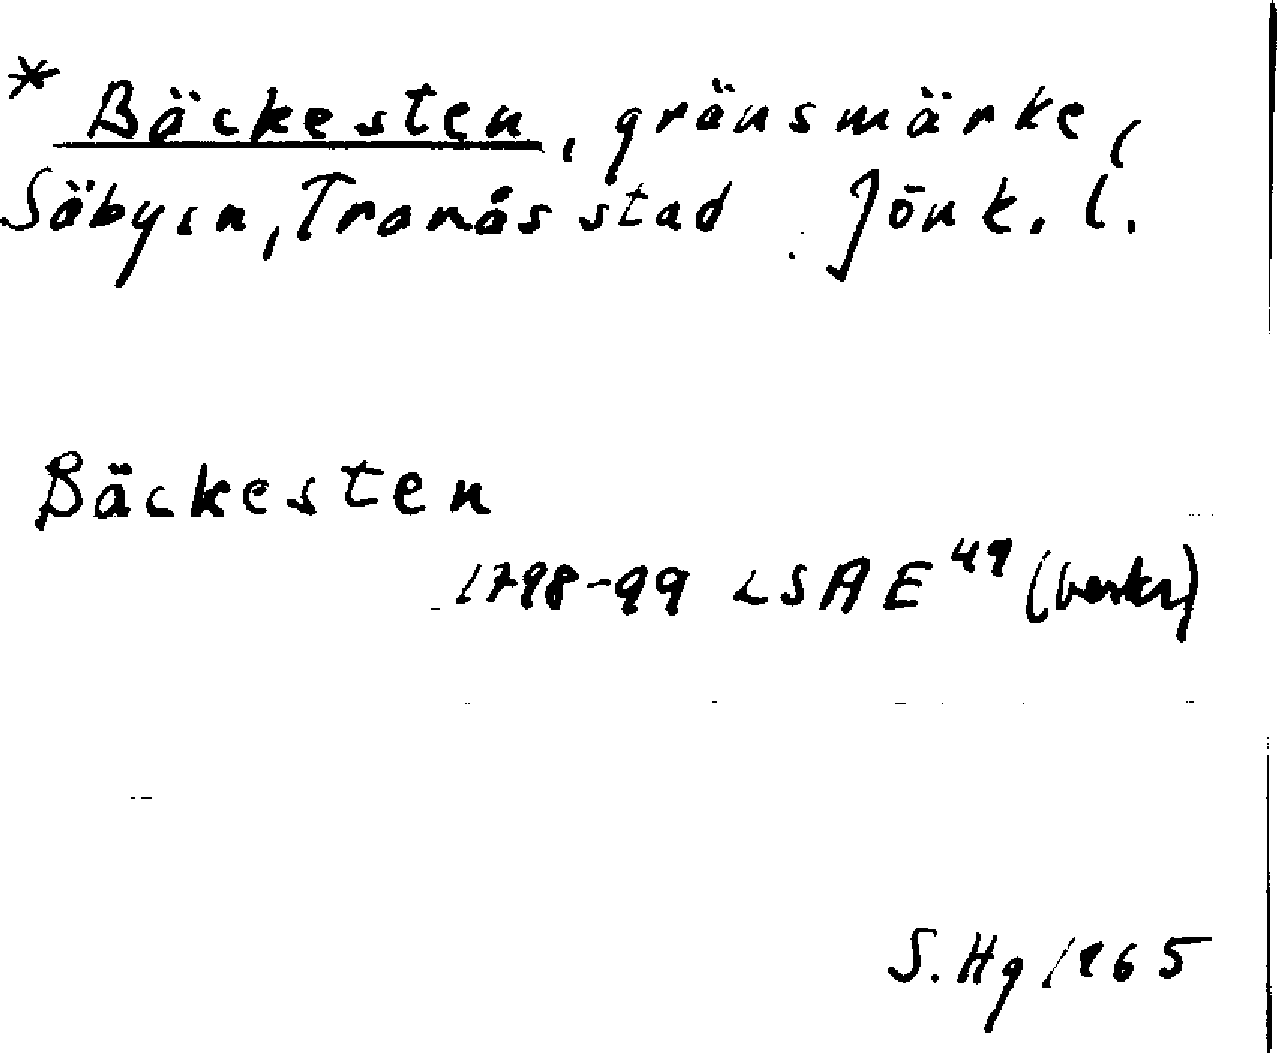 * Bäckesten, gränsmärke,
Säbyän, Tranås stad Jönk. l.
Bäckesten
1798-99 LSA E 49 (beskr)
S. Hg 1965